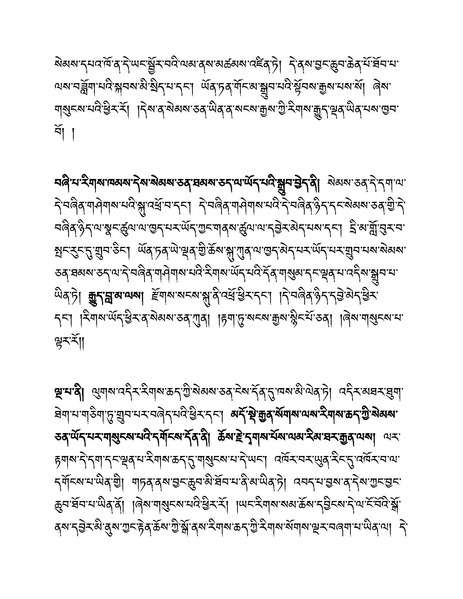 སེམས་དཔའ་ཁོ་ན་དེ་ཡང་སྦྱོར་བའི་ལམ་ནས་མཚམས་འཛིན་ཏེ། དེ་ནས་བྱང་ཆུབ་ཆེན་པོ་ཐོབ་པ་
ལས་བཟློག་པའི་སྐབས་མི་སྲིད་པ་དང་། ཡོན་ཏན་གོང་མ་སྒྲུབ་པའི་སྟོབས་རྒྱས་པས་སོ། ཞེས་
གསུངས་པའི་ཕྱིར་རོ། །དེས་ན་སེམས་ཅན་ཡིན་ན་སངས་རྒྱས་ཀྱི་རིགས་རྒྱུད་ལྡན་ཡིན་པས་ཁྱབ་
བོ། །
བཞི་པ་རིགས་ཁམས་དེས་སེམས་ཅན་ཐམས་ཅད་ལ་ཡོད་པའི་སྒྲུབ་བྱེད་ནི། སེམས་ཅན་དེ་དག་ལ་
དེ་བཞིན་གཤེགས་པའི་སྐུ་འཕྲོ་བ་དང་། དེ་བཞིན་གཤེགས་པའི་དེ་བཞིན་ཉིད་དང་སེམས་ཅན་གྱི་དེ་
བཞིན་ཉིད་ལ་སྣང་ཚུལ་ལ་ཁྱད་པར་ཡོད་ཀྱང་གནས་ཚུལ་ལ་དབྱེར་མེད་པས་དང་། དྲི་མ་གློ་བུར་བ་
སྤང་རུང་དུ་གྲུབ་ཅིང་། ཡོན་ཏན་ཡེ་ལྡན་གྱི་ཆོས་སྐུ་ཀུན་ལ་ཁྱད་མེད་པར་ཡོད་པར་གྲུབ་པས་སེམས་
ཅན་ཐམས་ཅད་ལ་དེ་བཞིན་གཤེགས་པའི་རིགས་ཡོད་པའི་དོན་གསུམ་དང་ལྡན་པ་འདིས་སྒྲུབ་པ་
ཡིན་ཏེ། རྒྱུད་བླ་མ་ལས། རྫོགས་སངས་སྐུ་ནི་འཕྲོ་ཕྱིར་དང་། །དེ་བཞིན་ཉིད་དབྱེ་མེད་ཕྱིར་
དང་། །རིགས་ཡོད་ཕྱིར་ན་སེམས་ཅན་ཀུན། །རྟག་ཏུ་སངས་རྒྱས་སྙིང་པོ་ཅན། །ཞེས་གསུངས་པ་
ལྟར་རོ།།
ལྔ་པ་ནི། ལུགས་འདིར་རིགས་ཆད་ཀྱི་སེམས་ཅན་ངེས་དོན་དུ་ཁས་མི་ལེན་ཏེ། འདིར་མཐར་ཐུག་
ཐེག་པ་གཅིག་ཏུ་གྲུབ་པར་བཞེད་པའི་ཕྱིར་དང་། མདོ་སྡེ་རྒྱན་སོགས་ལས་རིགས་ཆད་ཀྱི་སེམས་
ཅན་ཡོད་པར་གསུངས་པའི་དགོངས་དོན་ནི། ཆོས་རྗེ་དྭགས་པོས་ལམ་རིམ་ཐར་རྒྱན་ལས། ལར་
རྟགས་དེ་དག་དང་ལྡན་པ་རིགས་ཆད་དུ་གསུངས་པ་དེ་ཡང་། འཁོར་བར་ཡུན་རིང་དུ་འཁོར་བ་ལ་
དགོངས་པ་ཡིན་གྱི། གཏན་ནས་བྱང་ཆུབ་མི་ཐོབ་པ་ནི་མ་ཡིན་ཏེ། འབད་པ་བྱས་ན་དེས་ཀྱང་བྱང་
ཆུབ་ཐོབ་པ་ཡིན་ནོ། །ཞེས་གསུངས་པའི་ཕྱིར་རོ། །ཡང་རིགས་སམ་ཆོས་དབྱིངས་དེ་ལ་ངོ་བོའི་སྒོ་
ནས་དབྱེར་མི་ནུས་ཀྱང་རྟེན་ཆོས་ཀྱི་སྒོ་ནས་རིགས་ཆད་ཀྱི་རིགས་སོགས་ལྔར་བཞག་པ་ཡིན་ལ། དེ་